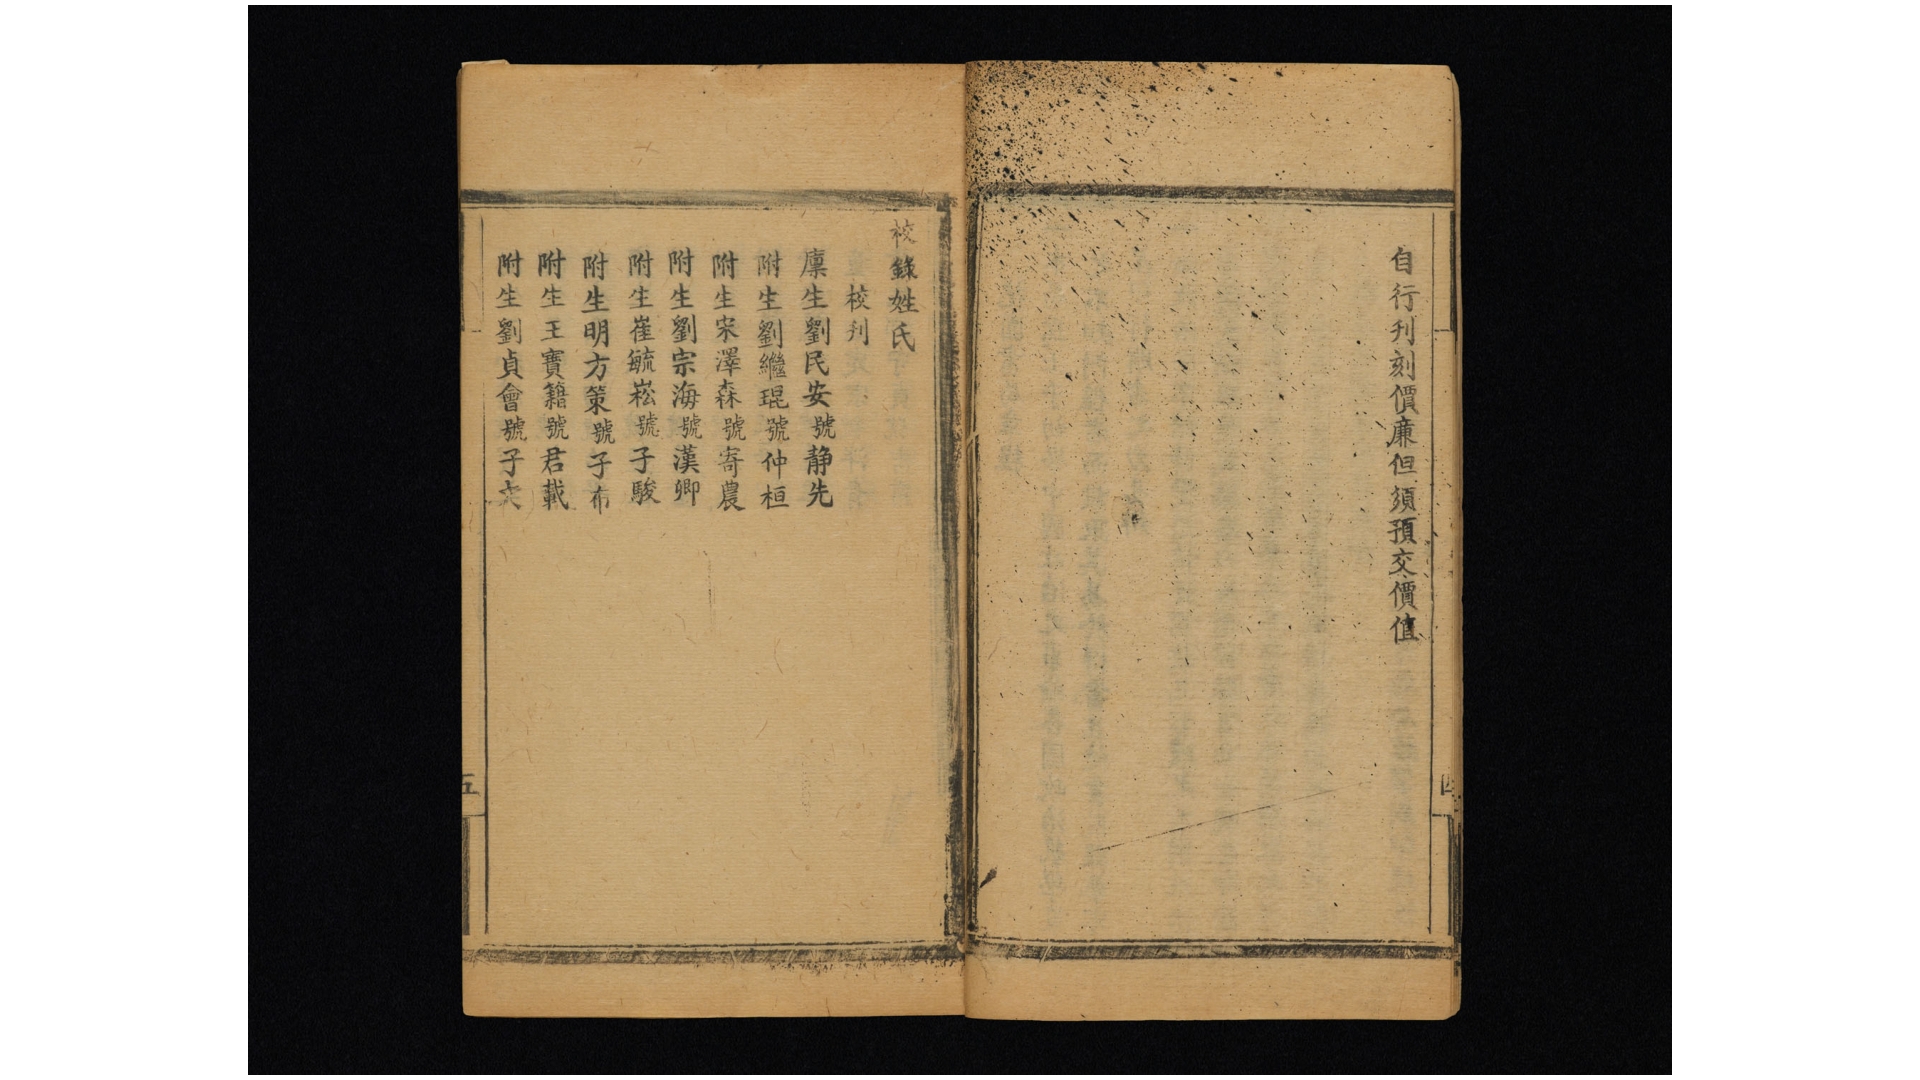 自行刋刻價廉但須預交價值
四
校錄姓氏
校刋
廪生劉民安號静先
附生劉繼琨號仲桓
附生宋澤森號寄農
附生劉宗海號漢卿
附生崔毓崧號子駿
附生明方策號子布
附生王寶籍號君載
附生劉貞會號子
五